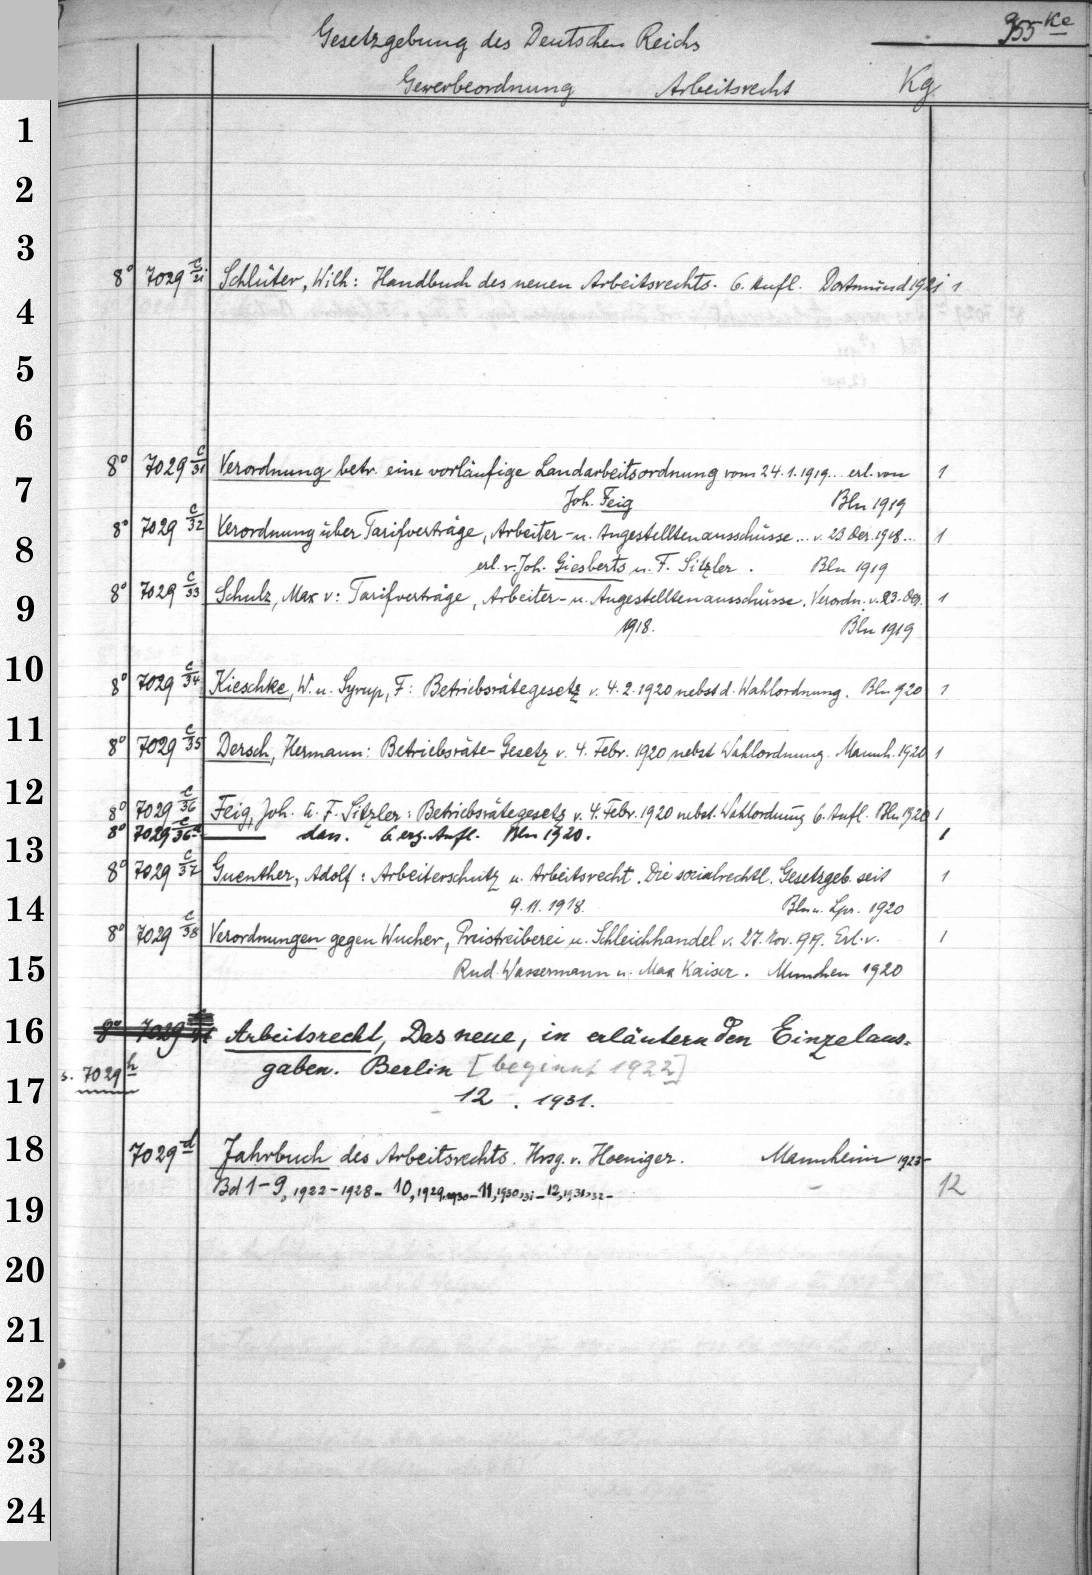 955 Ke
Gesetzgebung des Deutschen Reichs
Gewerbeordnung Arbeitsrecht Kg
1
2
3
8° 7029 c/21 Schlüter, Wilh: Handbuch des neuen Arbeitsrechts. 6. Aufl. Dortmund 1921 1
4
5
6
8° 7029 c/31 Verordnung betr. eine vorläufige Landarbeitsordnung vom 24.1.1919... erl. von 1
7
Joh. Feig Bln 1919
8° 7029 c/32 Verordnung über Tarifverträge, Arbeiter- u. Angestelltenausschüsse... v. 23 Dez. 1918... 1
8
erl. v. Joh. Giesberts u. F. Sitzler. Bln 1919
8° 7029 c/33 Schulz, Max v: Tarifverträge, Arbeiter- u. Angestelltenausschüsse. Verordn. v. 23. Dez. 1
9
1918. Bln 1919
10
8° 7029 c/34 Kieschke, W. u. Syrup, F: Betriebsrätegesetz v. 4.2.1920 nebst d. Wahlordnung. Bln 920 1
11
8° 7029 c/35 Dersch, Hermann: Betriebsräte-Gesetz v. 4. Febr. 1920 nebst Wahlordnung. Mannh. 1920 1
12
8° 7029 c/36 Feig, Joh. u. F. Sitzler: Betriebsrätegesetz v. 4. Febr. 1920 nebst Wahlordnung 6. Aufl. Bln 1920 1
8° 7029 c/36a das. 6. erg. Aufl. Bln 1920. 1
13
8° 7029 c/37 Guenther, Adolf: Arbeiterschutz u. Arbeitsrecht. Die socialrechtl. Gesetzgeb. seit 1
14
9.11.1918. Bln u. Lpz. 1920
8° 7029 c/38 Verordnungen gegen Wucher, Preistreiberei u. Schleichhandel v. 27. Nov. 1919. Erl. v. 1
15
Rud. Wassermann u. Max Kaiser. München 1920
16
8° 7029 Arbeitsrecht, Das neue, in erläuternden Einzelaus-
s. 7029 h gaben. Berlin [beginnt 1922]
17
12. 1931.
18
7029 d Jahrbuch des Arbeitsrechts. Hrsg. v. Hoeniger. Mannheim 1923-
Bd 1-9, 1922-1928- 10, 1929,1930- 11, 1930,31- 12, 1931,32- 12
19
20
21
22
23
24